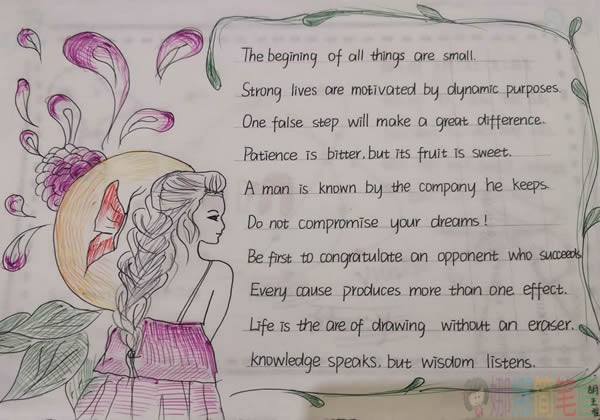 The begining of all things are small.
Strong lives are motivated by dynamic purposes.
One false step will make a great difference.
Patience is bitter, but its fruit is sweet.
A man is known by the company he keeps.
Do not compromise your dreams!
Be first to congratulate an opponent who succeeds
Every cause produces more than one effect.
Life is the are of drawing without an eraser.
knowledge speaks, but wisdom listens.